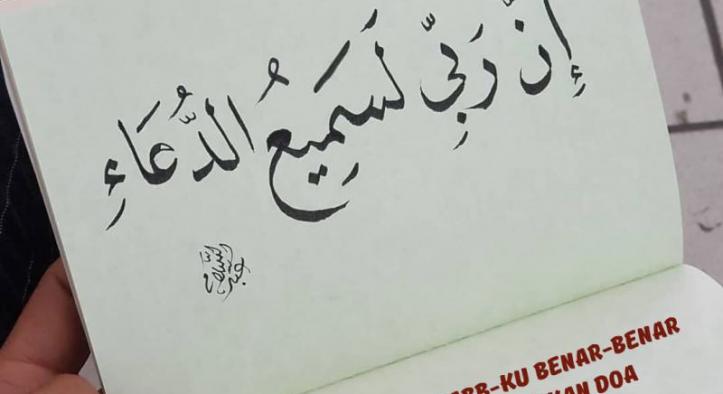 إِنَّ رَبِّي لَسَمِيعُ الدُّعَاءِ
BB-KU BENAR-BENAR
KAN DOA